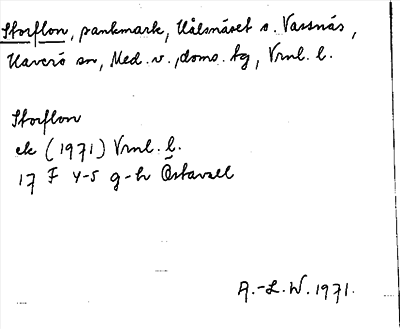 Storflon, sankmark, Kålsnäset o. Vassnäs,
Haverö sn, Med. v., doms. tg, Vrnl. l.
Storflon
ek (1971) Vrnl. l.
17 F 4-5 g-h Östavall
A.-L. W. 1971.